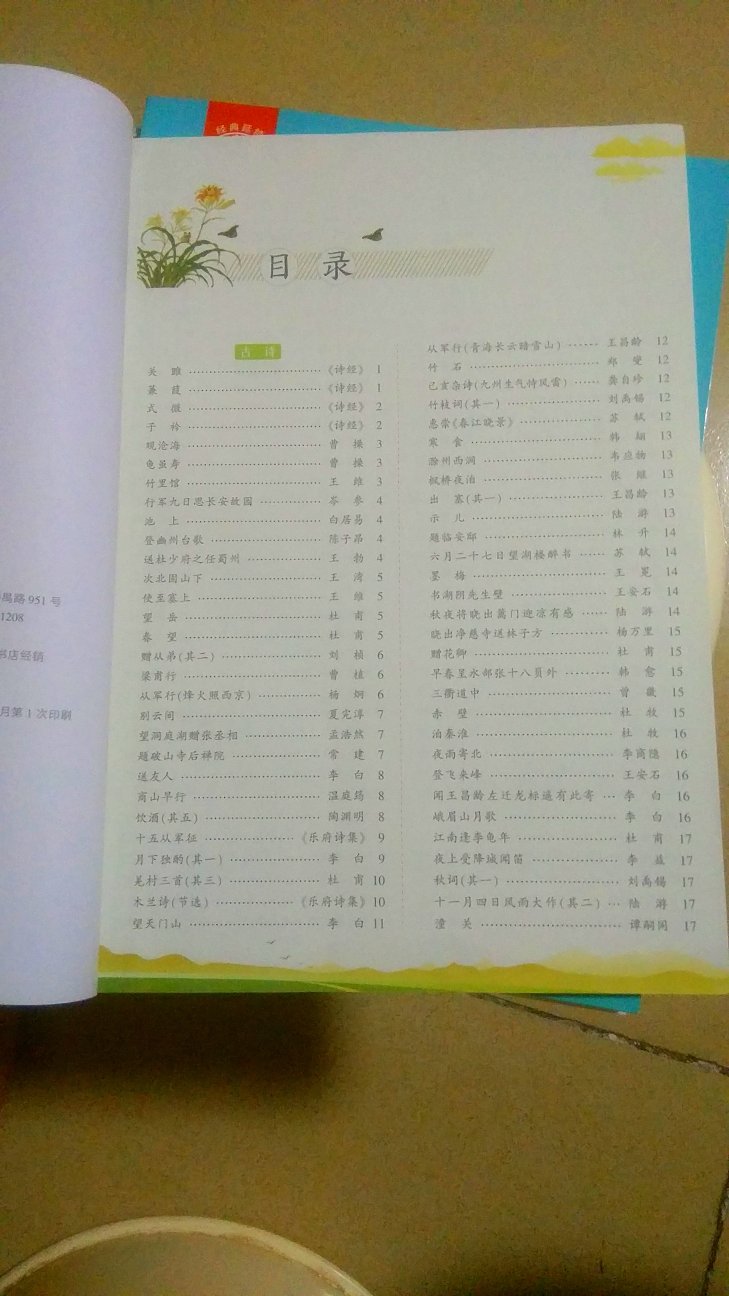 经典
目录
古诗
关雎 《诗经》 1
蒹葭 《诗经》 1
式微 《诗经》 2
子衿 《诗经》 2
观沧海 曹操 3
龟虽寿 曹操 3
竹里馆 王维 3
行军九日思长安故园 岑参 4
池上 白居易 4
登幽州台歌 陈子昂 4
送杜少府之任蜀州 王勃 4
次北固山下 王湾 5
使至塞上 王维 5
望岳 杜甫 5
春望 杜甫 5
赠从弟(其二) 刘桢 6
梁甫行 曹植 6
从军行(烽火照西京) 杨炯 6
别云间 夏完淳 7
望洞庭湖赠张丞相 孟浩然 7
题破山寺后禅院 常建 7
送友人 李白 8
商山早行 温庭筠 8
饮酒(其五) 陶渊明 8
十五从军征 《乐府诗集》 9
月下独酌(其一) 李白 9
羌村三首(其三) 杜甫 10
木兰诗(节选) 《乐府诗集》 10
望天门山 李白 11
从军行(青海长云暗雪山) 王昌龄 12
竹石 郑燮 12
己亥杂诗(九州生气恃风雷) 龚自珍 12
竹枝词(其一) 刘禹锡 12
惠崇《春江晚景》 苏轼 12
寒食 韩翃 13
滁州西涧 韦应物 13
枫桥夜泊 张继 13
出塞(其一) 王昌龄 13
示儿 陆游 13
题临安邸 林升 14
六月二十七日望湖楼醉书 苏轼 14
墨梅 王冕 14
书湖阴先生壁 王安石 14
秋夜将晓出篱门迎凉有感 陆游 14
晓出净慈寺送林子方 杨万里 15
赠花卿 杜甫 15
早春呈水部张十八员外 韩愈 15
三衢道中 曾几 15
赤壁 杜牧 15
泊秦淮 杜牧 16
夜雨寄北 李商隐 16
登飞来峰 王安石 16
闻王昌龄左迁龙标遥有此寄 李白 16
峨眉山月歌 李白 16
江南逢李龟年 杜甫 17
夜上受降城闻笛 李益 17
秋词(其一) 刘禹锡 17
十一月四日风雨大作(其二) 陆游 17
潼关 谭嗣同 17
禺路951号
1208
书店经销
月第1次印刷